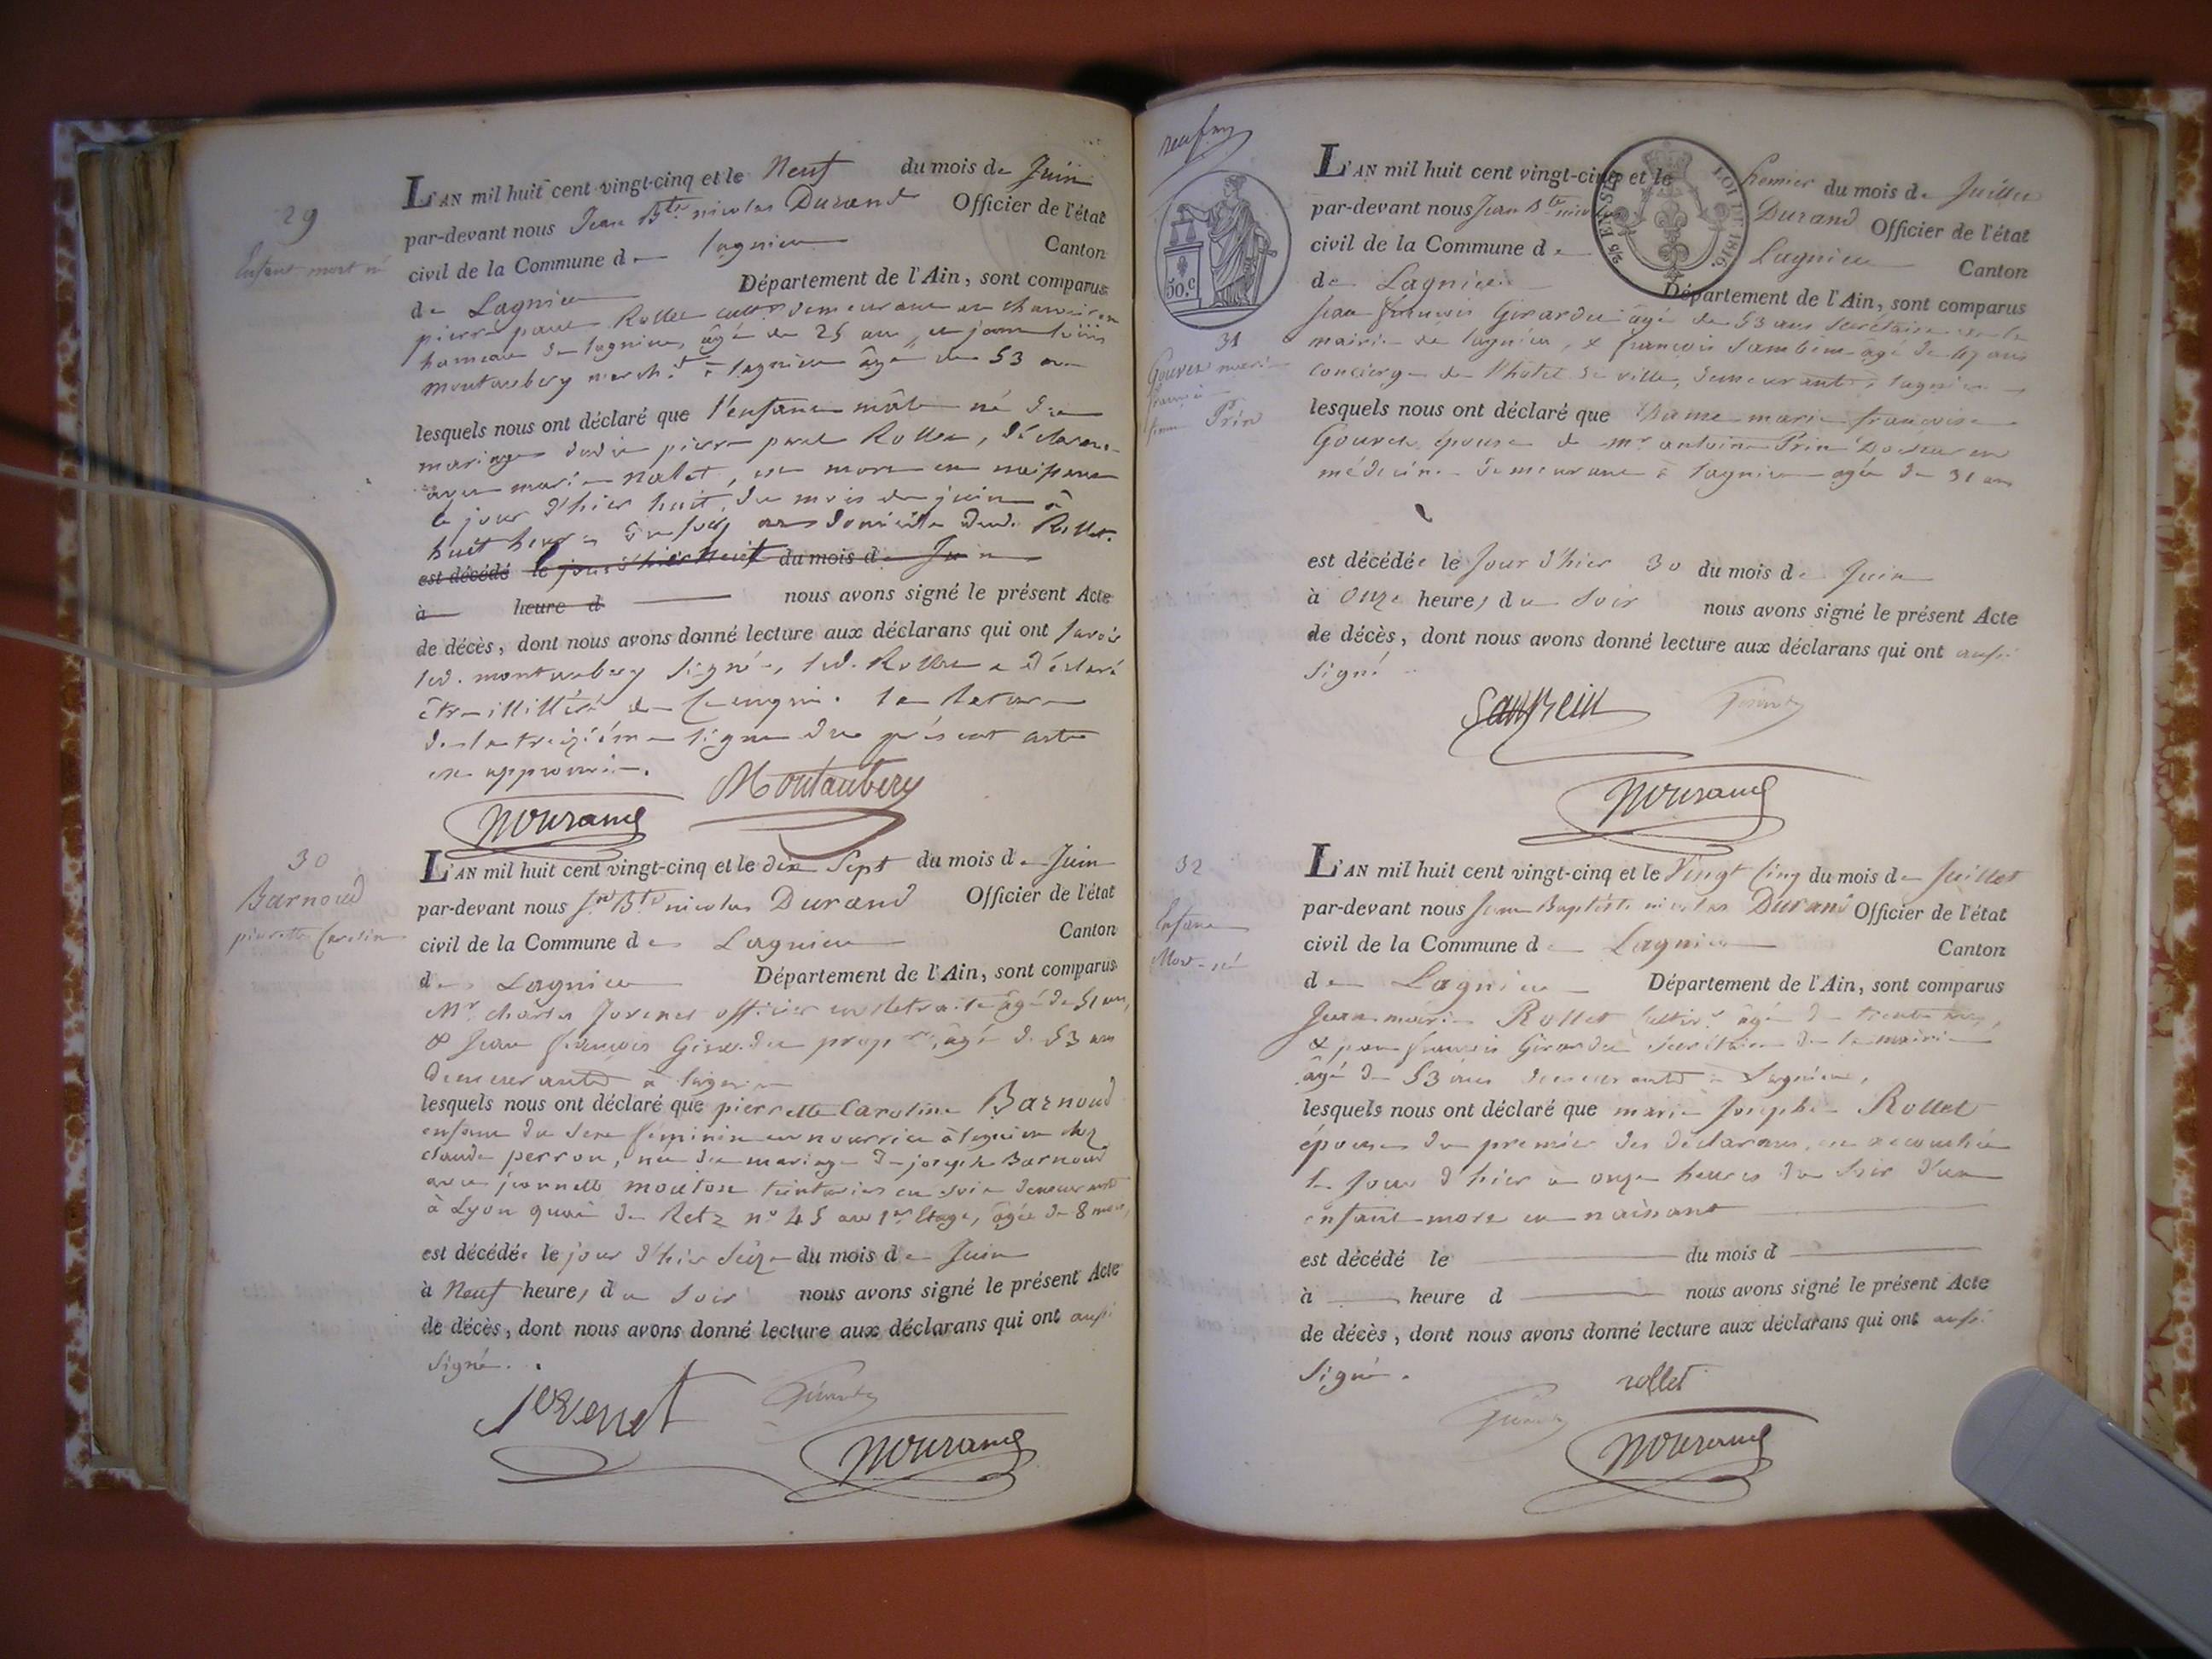 29
Enfant mort né
L'AN mil huit cent vingt-cinq et le Neuf du mois de Juin
par-devant nous Jean Bte nicolas Durand Officier de l'état
civil de la Commune de Lagnieu Canton
de Lagnieu Département de l'Ain, sont comparus
pierre paul Rollet cultr demeurant
hameau de lagnieu, âgé de 25 ans,
montaubery march.d à lagnieu âgé de 53 ans
lesquels nous ont déclaré que l'enfant mâle né du
mariage dudit pierre paul Rollet, déclarant
avec marie Nalet, est mort en naissant
le jour d'hier huit du mois de juin à
huit heures du soir au domicile dud. Rollet.
est décédé le jour d'hier du mois de Juin
à heure d nous avons signé le présent Acte
de décès, dont nous avons donné lecture aux déclarans qui ont savoir
led. montaubery signé, led. Rollet a déclaré
être illitéré de ce enquis. la rature
de la treizième ligne du présent acte
est approuvée.
Montaubery
NDurand
30
Barnoud
pierrette Caroline
L'AN mil huit cent vingt-cinq et le dix Sept du mois de Juin
par-devant nous Jn Bte nicolas Durand Officier de l'état
civil de la Commune de Lagnieu Canton
de Lagnieu Département de l'Ain, sont comparus
Mr charles Jvrenet officier en Retraite âgé de 51 ans,
& Jean françois Girardet propre, âgé de 53 ans
demeurants à lagnieu
lesquels nous ont déclaré que pierrette Caroline Barnoud
enfant du sexe féminin en nourrice à lagnieu chez
claude perron, née du mariage de joseph Barnoud
avec jeannette mouton teinturier en soie demeurant
à Lyon quai de Retz n° 45 au 1er Etage, âgée de 8 mois,
est décédée le jour d'hier seize du mois de Juin
à Neuf heures du soir nous avons signé le présent Acte
de décès, dont nous avons donné lecture aux déclarans qui ont aussi
signé.
Girardet
NDurand
neuf
50.c
LOI DE 1816.
31
Gouvet marie
françoise
femme Prin
L'AN mil huit cent vingt-cinq et le Premier du mois de Juillet
par-devant nous Jean Bte nicolas Durand Officier de l'état
civil de la Commune de Lagnieu Canton
de Lagnieu Département de l'Ain, sont comparus
Jean françois Girardet âgé de 53 ans secrétaire de la
mairie de lagnieu, & françois âgé de ans
concierge de l'hôtel de ville, demeurants à lagnieu
lesquels nous ont déclaré que Dame marie françoise
Gouvet épouse de mr antoine Prin Docteur en
médecine demeurant à lagnieu agée de 31 ans
est décédée le jour d'hier 30 du mois de Juin
à Onze heures du soir nous avons signé le présent Acte
de décès, dont nous avons donné lecture aux déclarans qui ont aussi
signé
Girardet
NDurand
32
Enfant
Mort-né
L'AN mil huit cent vingt-cinq et le Vingt Cinq du mois de Juillet
par-devant nous Jean Baptiste nicolas Durand Officier de l'état
civil de la Commune de Lagnieu Canton
de Lagnieu Département de l'Ain, sont comparus
Jean marie Rollet cultivr âgé de trente ans,
& jean françois Girardet secrétaire de la mairie
âgé de 53 ans demeurants à Lagnieu,
lesquels nous ont déclaré que marie Josephe Rollet
épouse du premier des déclarans, est accouchée
le jour d'hier à onze heures du soir d'un
enfant mort en naissant
est décédé le du mois d
à heure d nous avons signé le présent Acte
de décès, dont nous avons donné lecture aux déclarans qui ont aussi
signé.
rollet
Girardet
NDurand